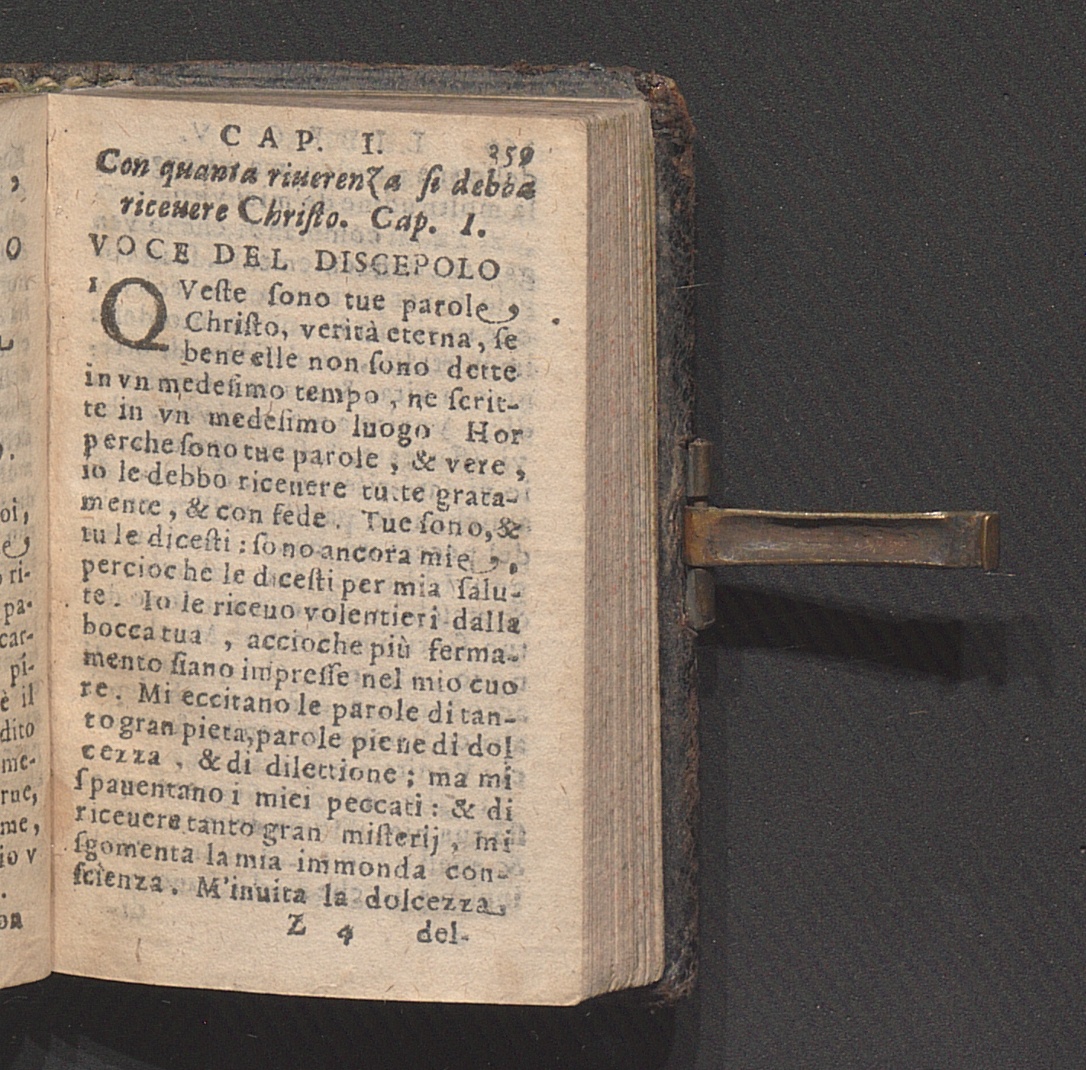 CAP. I. 359
Con quanta riuerenza si debba
riceuere Christo. Cap. I.
VOCE DEL DISCEPOLO
1 QVeste sono tue parole,
Christo, verità eterna, se
bene elle non sono dette
in vn medesimo tempo, ne scrit-
te in vn medesimo luogo Hor
perche sono tue parole, & vere,
io le debbo riceuere tutte grata-
mente, & con fede. Tue sono, &
tu le dicesti: sono ancora mie,
percioche le dicesti per mia salu-
te. Io le riceuo volentieri dalla
bocca tua, accioche più ferma-
mento siano impresse nel mio cuo
re. Mi eccitano le parole di tan-
to gran pieta, parole piene di dol
cezza, & di dilettione; ma mi
spauentano i miei peccati: & di
riceuere tanto gran misterij, mi
sgomenta la mia immonda con-
scienza. M'inuita la dolcezza
Z 4 del-